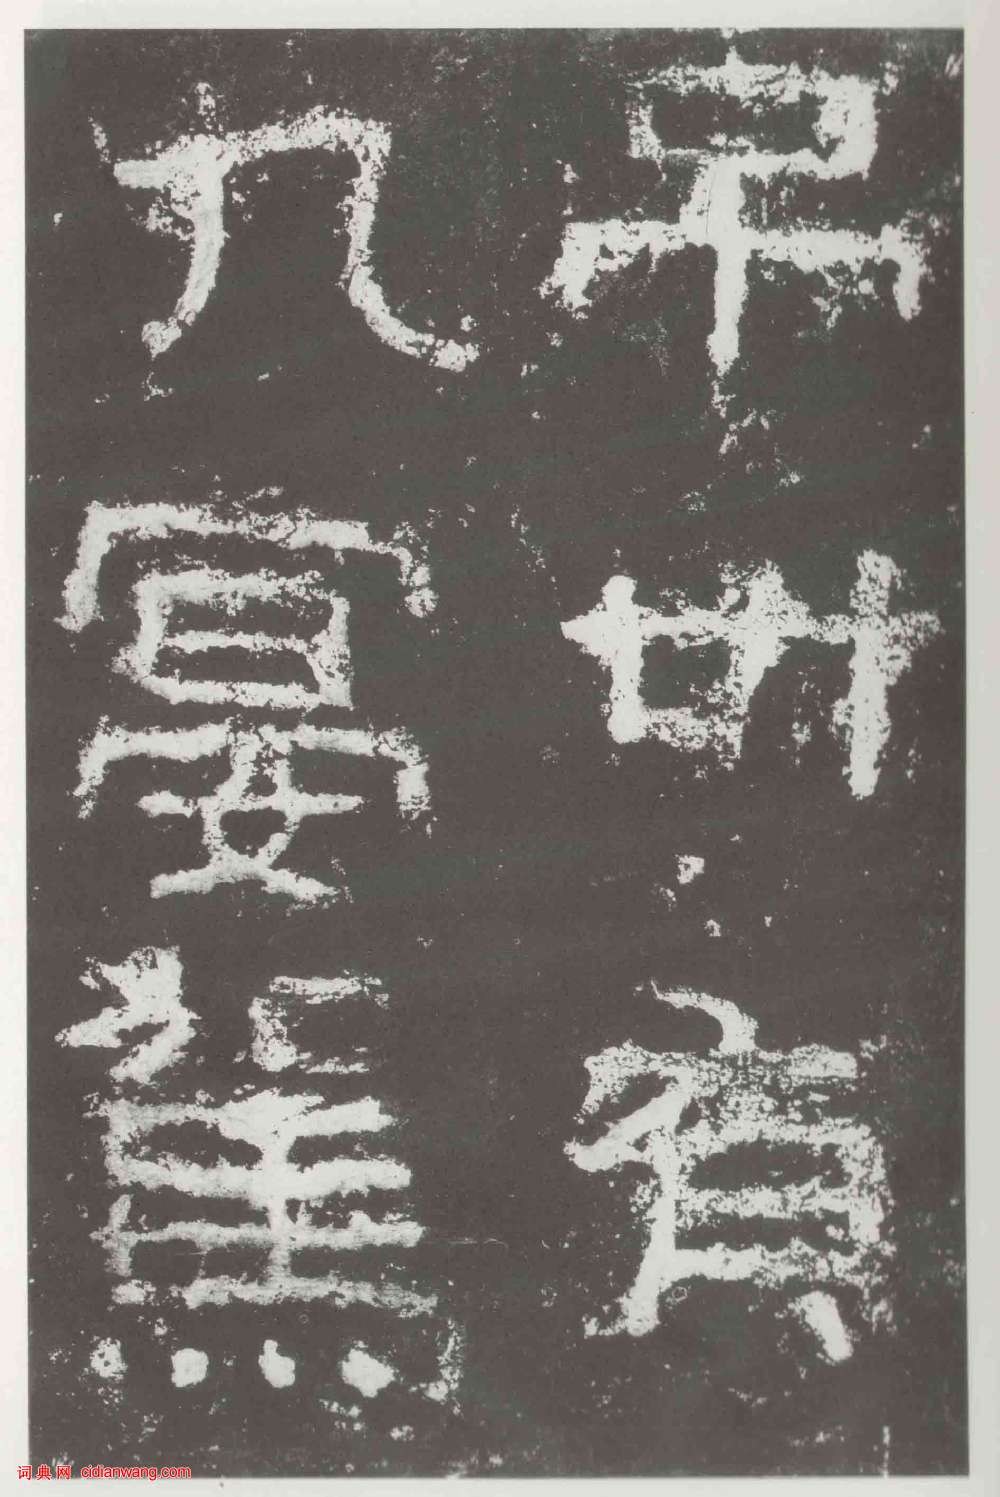 弔卅有
九宴駕
词典网 cidianwang.com